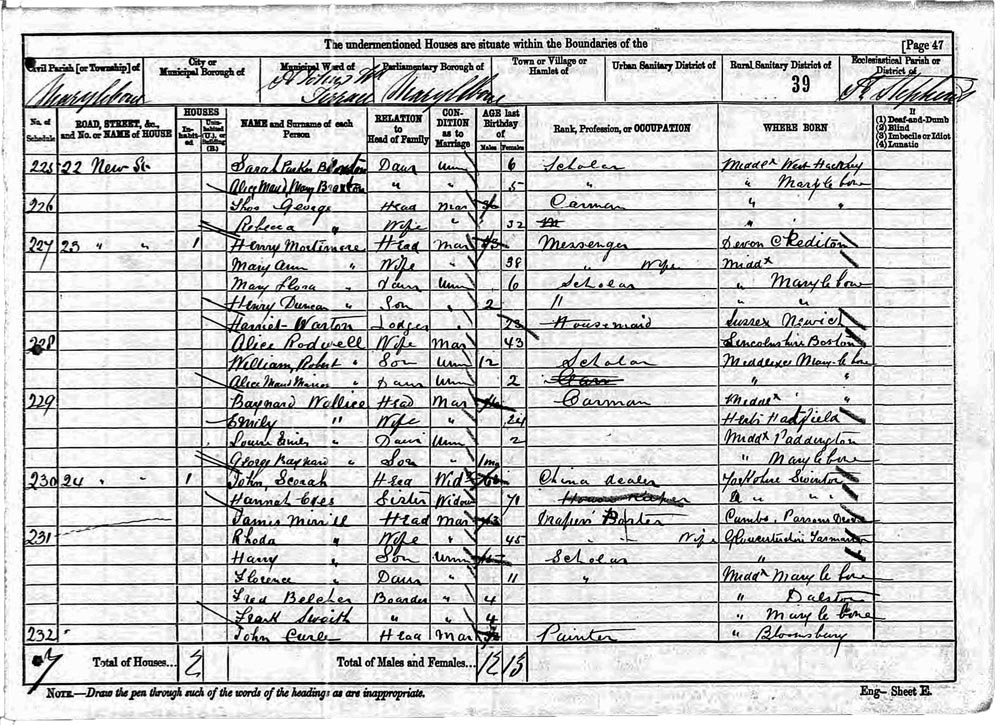 The undermentioned Houses are situate within the Boundaries of the [Page 47
Civil Parish [or Township] of City or Municipal Borough of Municipal Ward of Parliamentary Borough of Town or Village or Hamlet of Urban Sanitary District of Rural Sanitary District of Ecclesiastical Parish or District of
Marylebone Terrace Marylebone 39 St Stephens
No. of Schedule ROAD, STREET, &c., and No. or NAME of HOUSE HOUSES Inhabited Uninhabited (U.), or Building (B.) NAME and Surname of each Person RELATION to Head of Family CONDITION as to Marriage AGE last Birthday of Males Females Rank, Profession, or OCCUPATION WHERE BORN If (1) Deaf-and-Dumb (2) Blind (3) Imbecile or Idiot (4) Lunatic
225 22 New St Sarah Daur Unm 6 Scholar Middx West Hackney
Alice Maud Mary " " 5 " " Marylebone
226 Thos George Head Mar 36 Carman " "
Rebecca " Wife " 32 " "
227 23 " " 1 Henry Mortimore Head Mar 43 Messenger Devon Crediton
Mary Ann " Wife " 38 " Wife Middx
Mary Flora " Daur Unm 6 Scholar " Marylebone
Henry Duncan " Son " 2 " " "
Harriet Warton Lodger " 23 Housemaid Sussex Newick
228 Alice Rodwell Wife Mar 43 Lincolnshire Boston
William Robert " Son Unm 12 Scholar Middlesex Marylebone
Alice Maud " Daur Unm 2 " "
229 Baynard Wollice Head Mar Carman Middx "
Emily " Wife " 24 Herts Hatfield
Louisa " Daur Unm 2 Middx Paddington
George Baynard " Son 1m " Marylebone
230 24 " " 1 John Scorah Head Widr China dealer Yorkshire Swinton
Hannah Sister Widow 71 Housekeeper " "
James Merrill Head Mar Drapers Porter Cumbd. Parsons
231 Rhoda " Wife " 45 " " Wife Gloucestershire
Harry " Son Unm Scholar "
Florence " Daur " 11 " Middx Marylebone
Fred Belcher Boarder " 4 " Dalston
Frank " " 4 " Marylebone
232 " John Curle Head Mar Painter " Bloomsbury
7 Total of Houses... 2 Total of Males and Females... 12 13
NOTE.—Draw the pen through such of the words of the headings as are inappropriate. Eng— Sheet E.